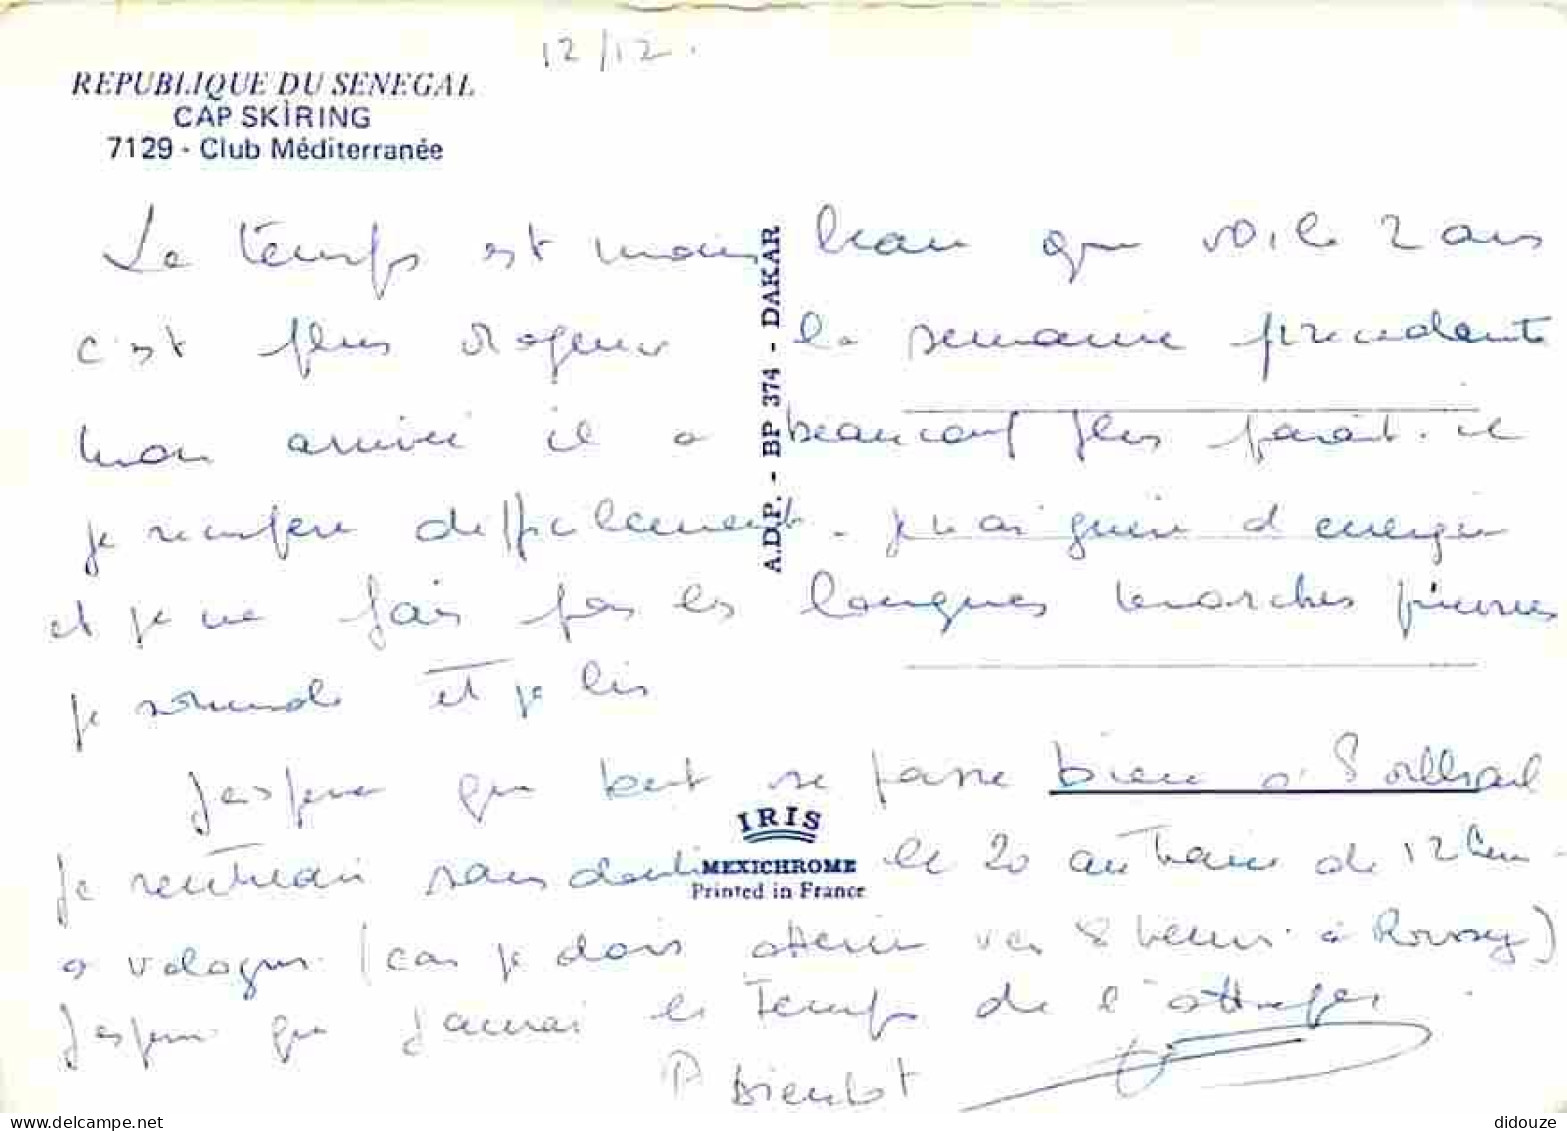 12/12.
REPUBLIQUE DU SENEGAL
CAP SKIRING
7129 - Club Méditerranée
Le temps est moins beau que voilà 2 ans
c'est plus nuageux la semaine précédente
mon arrivée il a beaucoup plus paraît-il
je récupère difficilement - je n'ai guère d'énergie
et je ne fais pas les longues marches
je et je lis
J'espère que tout se passe bien à
Je rentrerai sans doute le 20 au train de 12 heu-
à Valognes (car je dois atterrir vers 8 heures à Roissy)
J'espère que j'aurai le temps de l'attraper
A Bientôt
A.D.P. - BP 374 - DAKAR
IRIS
MEXICHROME
Printed in France
didouze